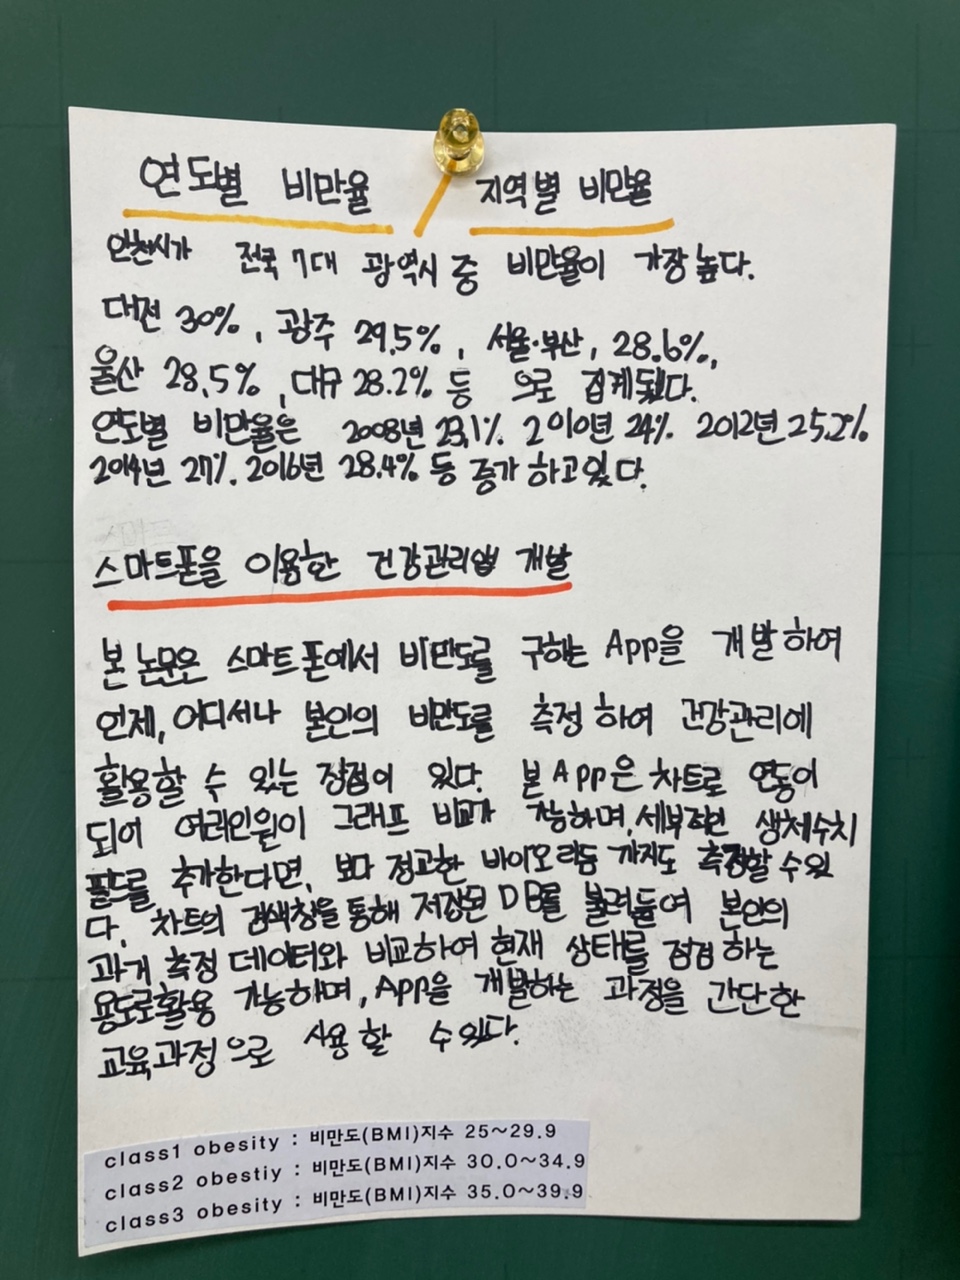 연도별 비만율 / 지역별 비만율
인천시가 전국 7대 광역시 중 비만율이 가장 높다.
대전 30%, 광주 29.5%, 서울·부산, 28.6%,
울산 28.5%, 대구 28.2% 등 으로 집계됬다.
연도별 비만율은 2008년 23.1%. 2010년 24%. 2012년 25.2%
2014년 27%. 2016년 28.4% 등 증가 하고있다.
스마트폰을 이용한 건강관리앱 개발
본 논문은 스마트폰에서 비만도를 구하는 App을 개발하여
언제, 어디서나 본인의 비만도를 측정 하여 건강관리에
활용할 수 있는 장점이 있다. 본 App은 차트로 연동이
되어 여러인원이 그래프 비교가 가능하며, 세부적인 생체수치
필드를 추가한다면, 보다 정교한 바이오리듬 까지도 측정할 수 있
다. 차트의 검색창을 통해 저장된 DB를 불러들여 본인의
과거 측정 데이터와 비교하여 현재 상태를 점검 하는
용도로 활용 가능하며, App을 개발하는 과정을 간단한
교육과정 으로 사용 할 수 있다.
class1 obesity : 비만도(BMI)지수 25~29.9
class2 obestiy : 비만도(BMI)지수 30.0~34.9
class3 obesity : 비만도(BMI)지수 35.0~39.9